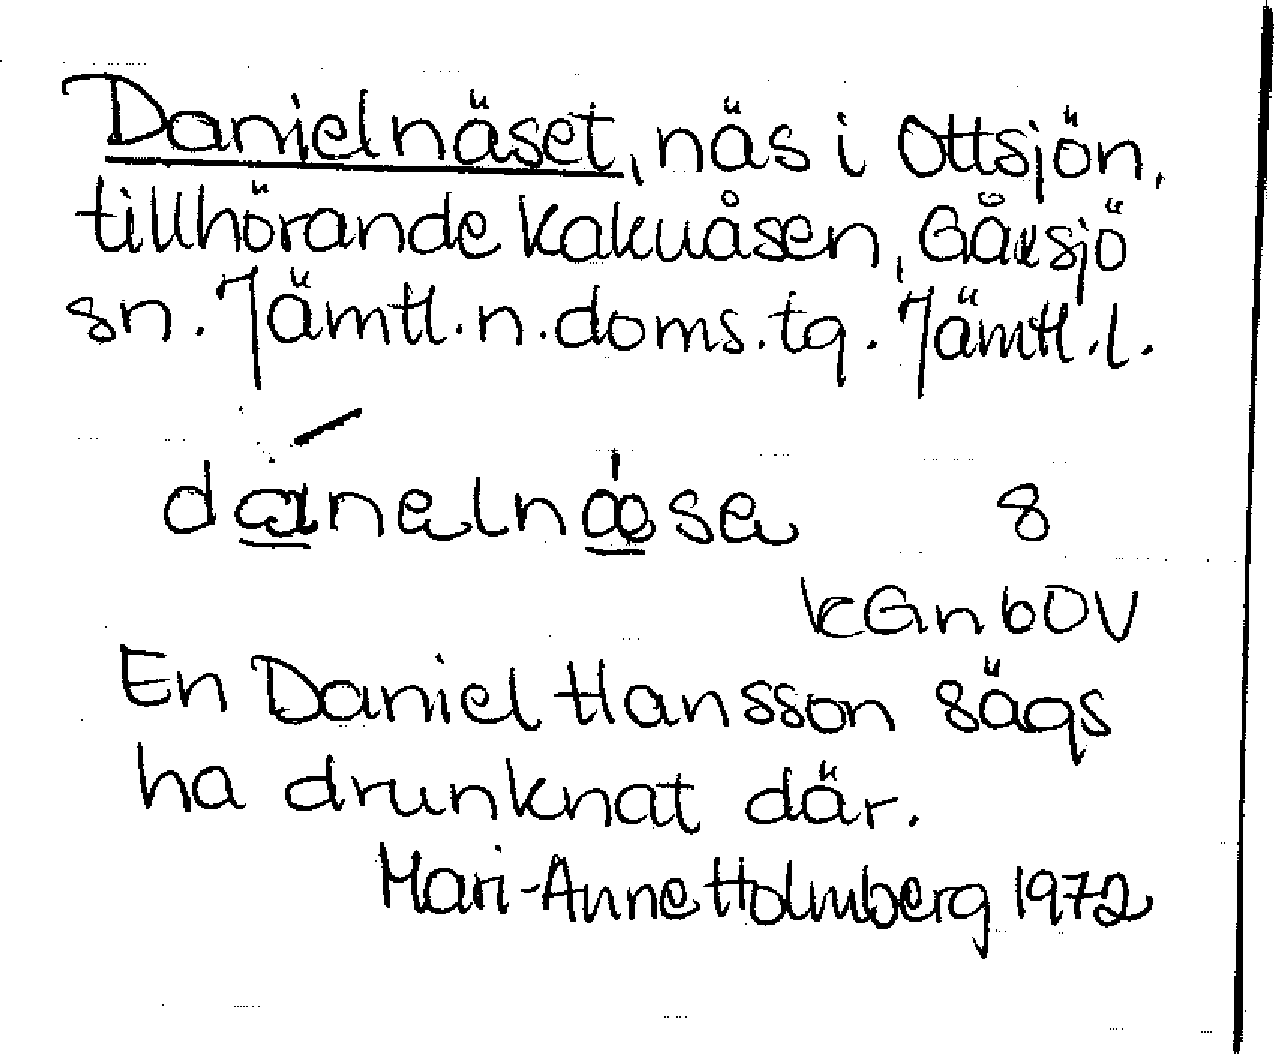 Danielnäset, näs i Ottsjön,
tillhörande Kakuåsen, Gåxsjö
sn. Jämtl. n. doms. tg. Jämtl. l.
dánelnæ̍se 8
KGnbOV
En Daniel Hansson sägs
ha drunknat där.
Mari-Anne Holmberg 1972